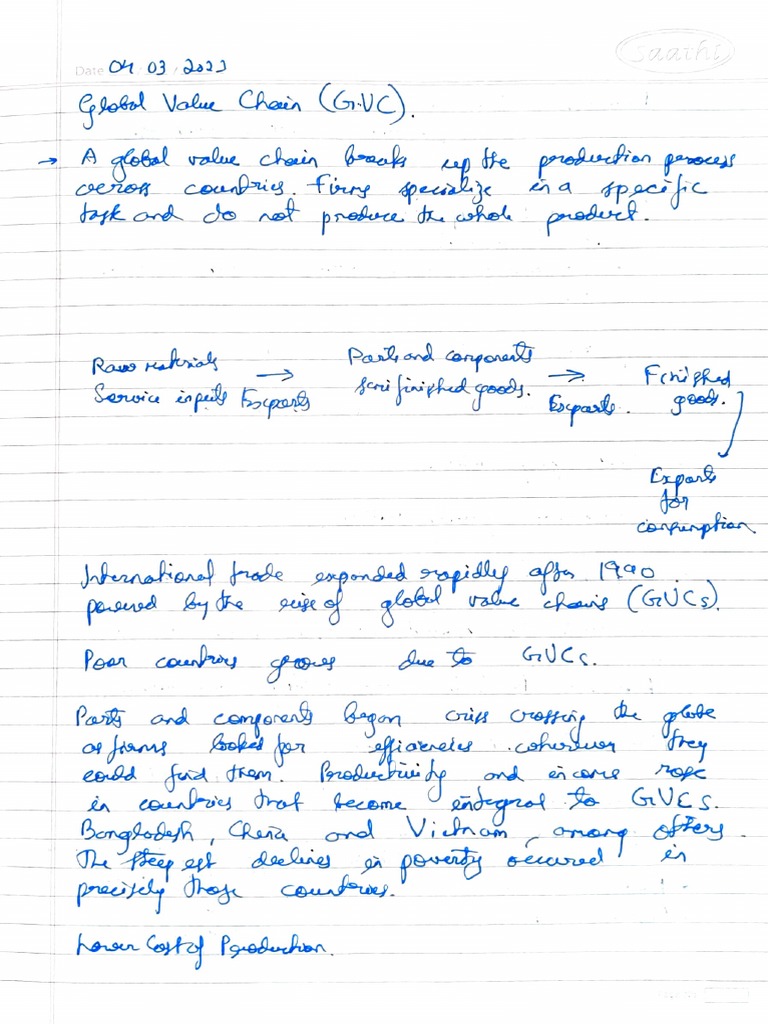 saathi
Date 04 03 2023
Global Value Chain (GVC).
→ A global value chain breaks up the production process
across countries. Firms specialize in a specific
task and do not produce the whole product.
Raw materials → Parts and components → Finished
Service inputs Exports semi finished goods. Exports. goods.
Exports
for
consumption
International trade expanded rapidly after 1990
powered by the rise of global value chains (GVCs).
Poor countries grows due to GVCs.
Parts and components began criss crossing the globe
as firms looked for efficiencies wherever they
could find them. Productivity and income rose
in countries that become integral to GVCs.
Bangladesh, China and Vietnam, among others.
The steepest declines in poverty occured in
precisely those countries.
Lower Cost of Production.